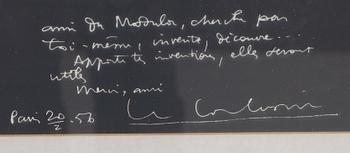 ami du Modulor, cherche par
toi-même, invente, découvre...
Apporte tes inventions, elles seront
utiles
Merci, ami
Paris 20/2.56 Le Corbusier